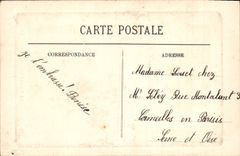 CARTE POSTALE
CORRESPONDANCE
ADRESSE
Je t'embrasse! Denise
Madame Louet chez
Mr Leloy Rue Montalant 3
Cormeilles en Parisis
Seine et Oise